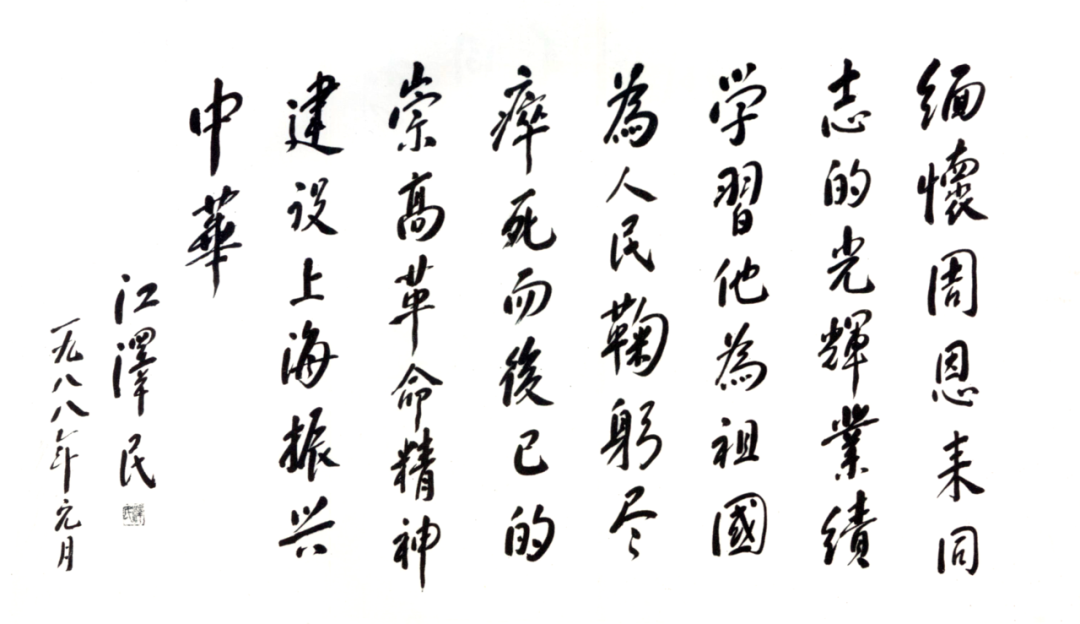 缅懷周恩来同
志的光輝業績
学習他為祖國
為人民鞠躬尽
瘁死而後已的
崇高革命精神
建设上海振兴
中華
江澤民
一九八八年元月